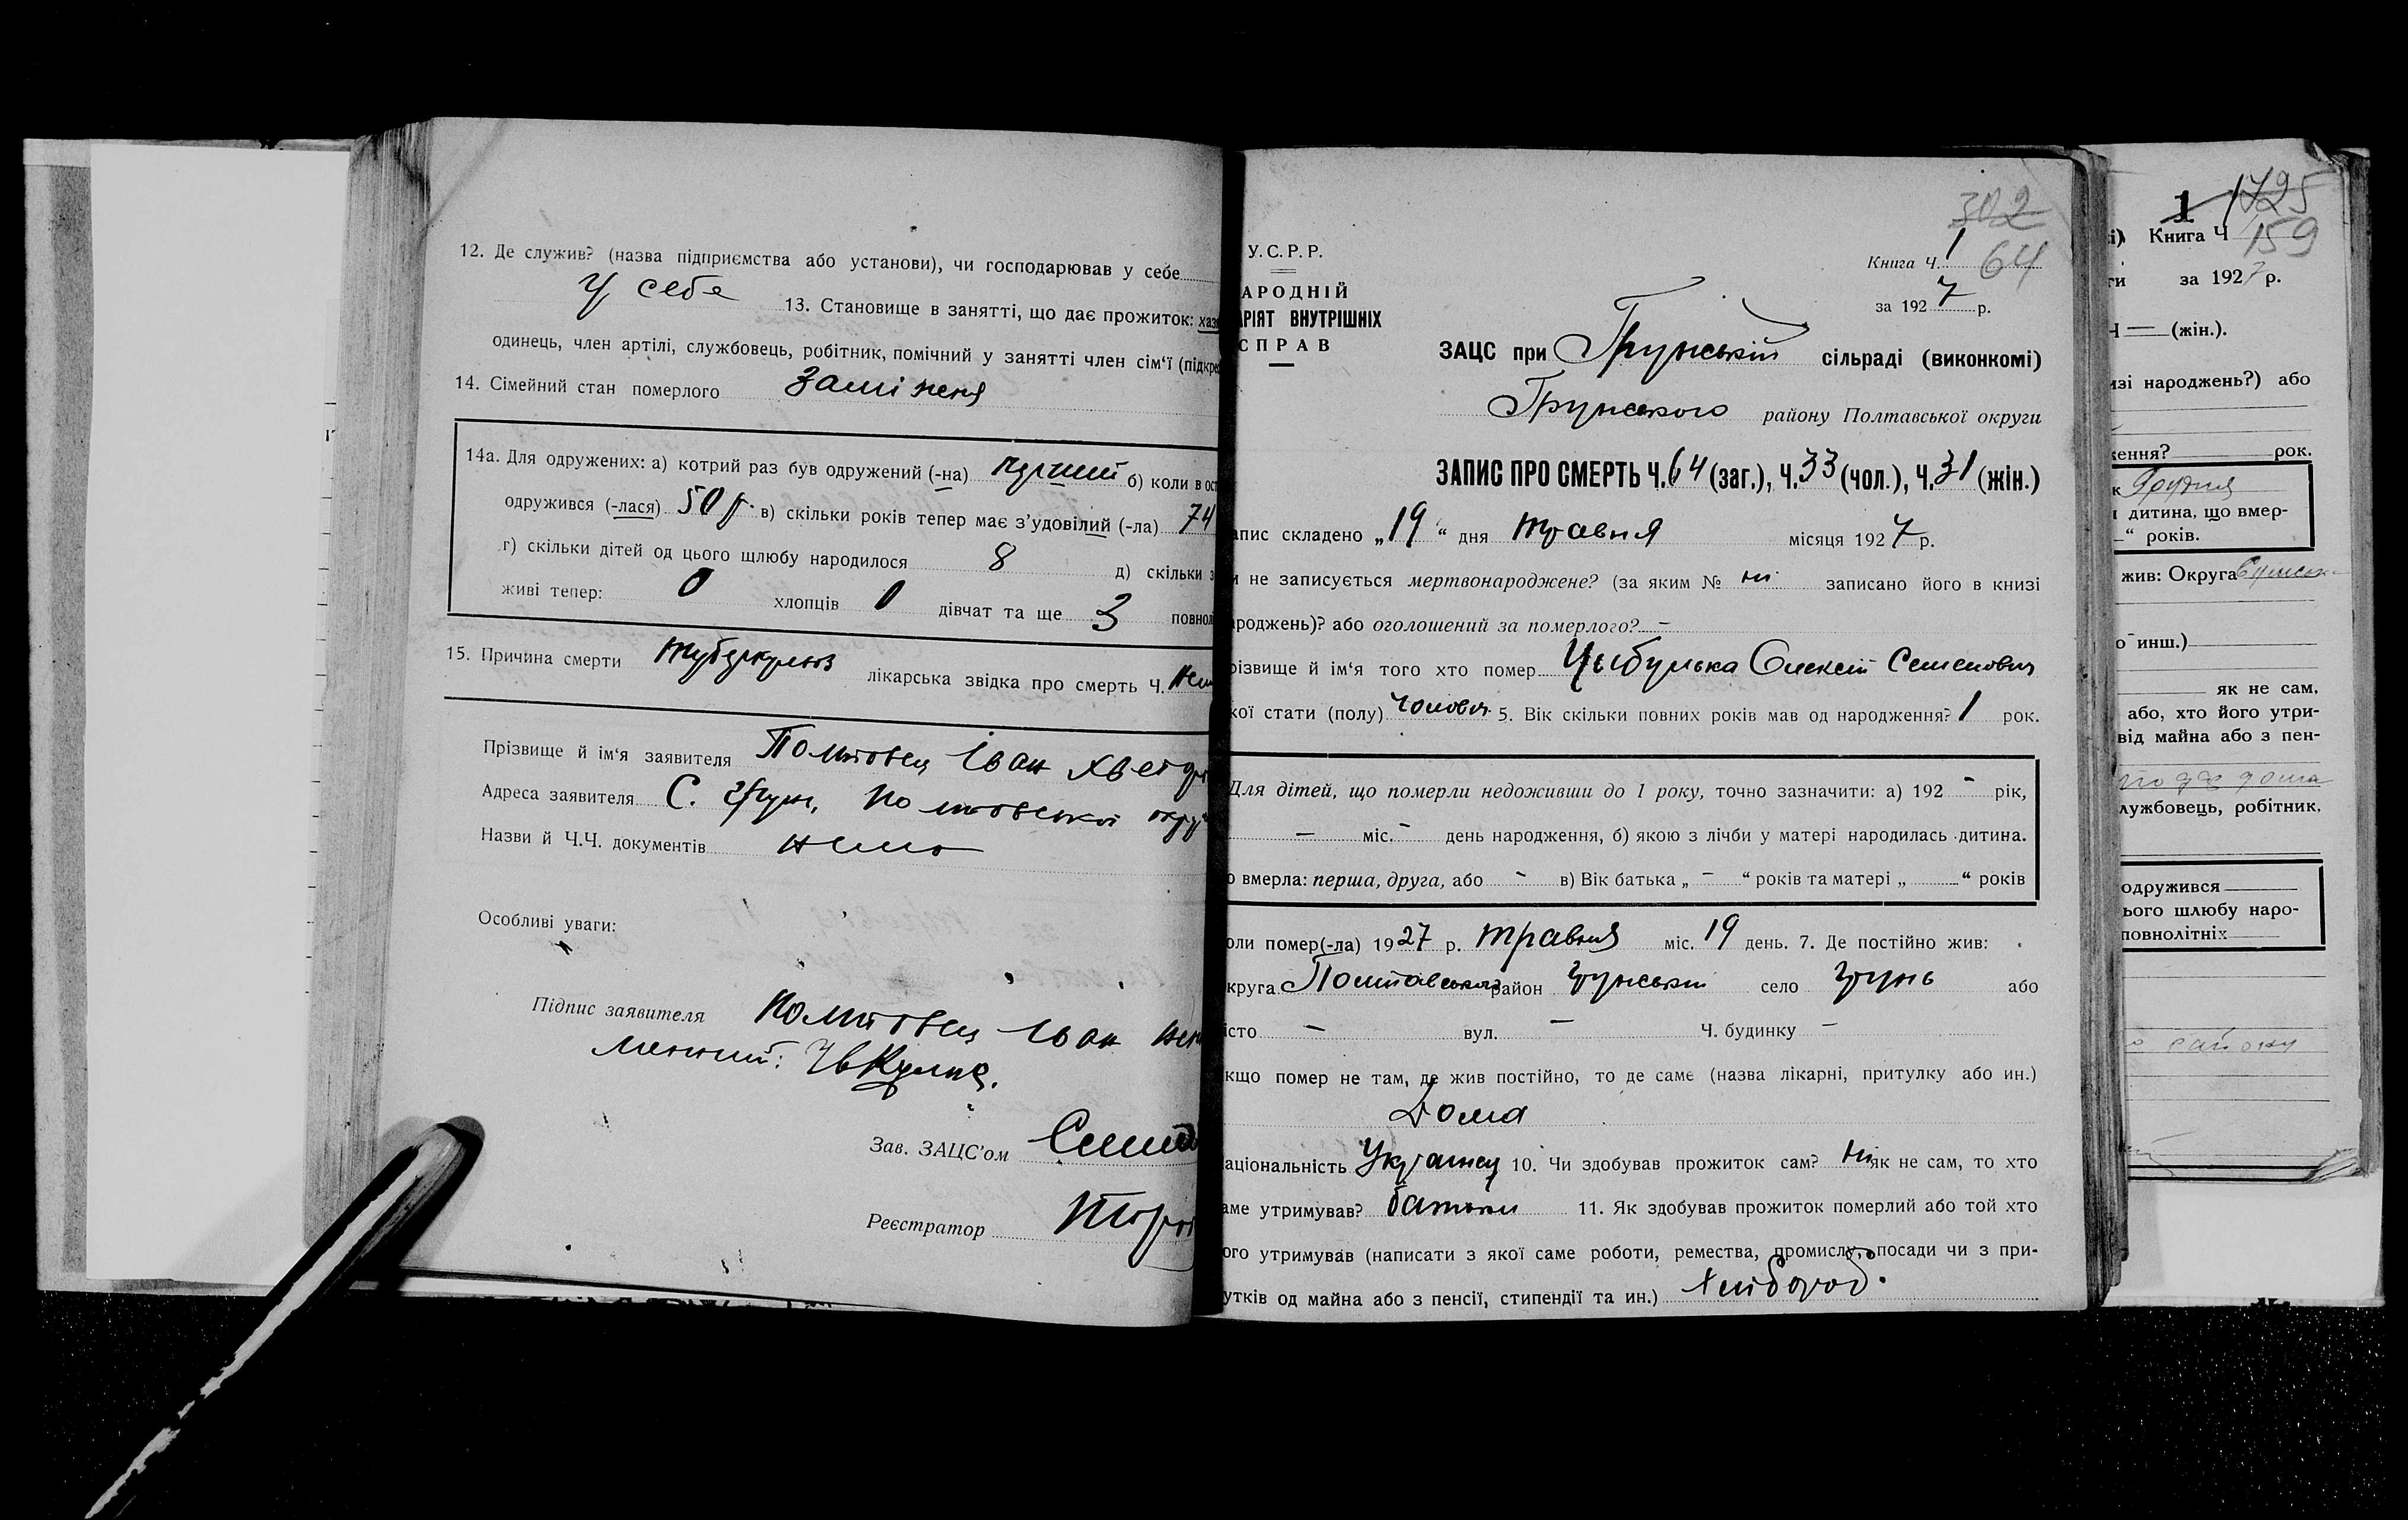 12. Де служив? (назва підприємства або установи), чи господарював у себе
у себе 13. Становище в занятті, що дає прожиток: хаз
одинець, член артілі, службовець, робітник, помічний у занятті член сім'ї (підкре
14. Сімейний стан померлого заміжня
14а. Для одружених: а) котрий раз був одружений (-на) перший б) коли в ост
одружився (-лася) 50 р. в) скільки років тепер має з'удовілий (-ла) 74
г) скільки дітей од цього шлюбу народилося 8 д) скільки з
живі тепер: 0 хлопців 0 дівчат та ще 3 повнол
15. Причина смерти туберкульоз лікарська звідка про смерть Ч.
Прізвище й ім'я заявителя Полтовец Іван Хвед
Адреса заявителя С. Грунь, Полтовської окру
Назви й Ч.Ч. документів нема
Особливі уваги:
Підпис заявителя Полтовец Іван
Зав. ЗАЦС'ом
Реєстратор
У.С.Р.Р.
АРОДНІЙ
АРІЯТ ВНУТРІШНІХ
СПРАВ
302
Книга Ч. 1 64
за 1927 р.
ЗАЦС при Грунській сільраді (виконкомі)
Грунського району Полтавської округи
ЗАПИС ПРО СМЕРТЬ Ч. 64 (заг.), Ч. 33 (чол.), Ч. 31 (жін.)
апис складено „19“ дня травня місяця 1927 р.
и не записується мертвонароджене? (за яким № ні записано його в книзі
ароджень)? або оголошений за померлого? –
різвище й ім'я того хто помер Цыбулька Олексій Семенович
кої стати (полу) чолович. 5. Вік скільки повних років мав од народження? 1 рок.
Для дітей, що померли недоживши до 1 року, точно зазначити: а) 192 – рік,
– міс. – день народження, б) якою з лічби у матері народилась дитина.
о вмерла: перша, друга, або – в) Вік батька „ – “ років та матері „ “ років
оли помер(-ла) 1927 р. травня міс. 19 день. 7. Де постійно жив:
круга Полтавська район Грунський село Грунь або
істо – вул. – Ч. будинку –
кщо помер не там, де жив постійно, то де саме (назва лікарні, притулку або ин.)
Дома
аціональність Українец 10. Чи здобував прожиток сам? ні як не сам, то хто
аме утримував? батьки 11. Як здобував прожиток померлий або той хто
ого утримував (написати з якої саме роботи, ремества, промислу, посади чи з при-
утків од майна або з пенсії, стипендії та ин.) хлібороб.
1 1725
і) Книга Ч 159
ги за 1927 р.
Ч — (жін.).
изі народжень?) або
ження? рок.
дитина, що вмер-
“ років.
жив: Округа Сумськ
о инш.)
як не сам,
або, хто його утри-
від майна або з пен-
лужбовець, робітник,
одружився
ього шлюбу наро-
повнолітніх
району